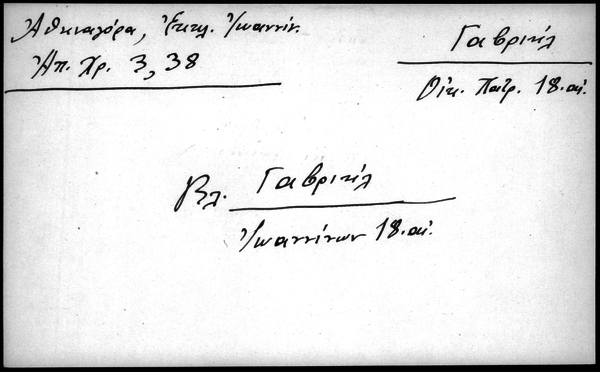 Ἀθηναγόρα, Ἐκκλ. Ἰωαννίν.
Ἠπ. Χρ. 3, 38
Γαβριήλ
Οἰκ. Πατρ. 18. αἰ.
Βλ. Γαβριήλ
Ἰωαννίνων 18. αἰ.